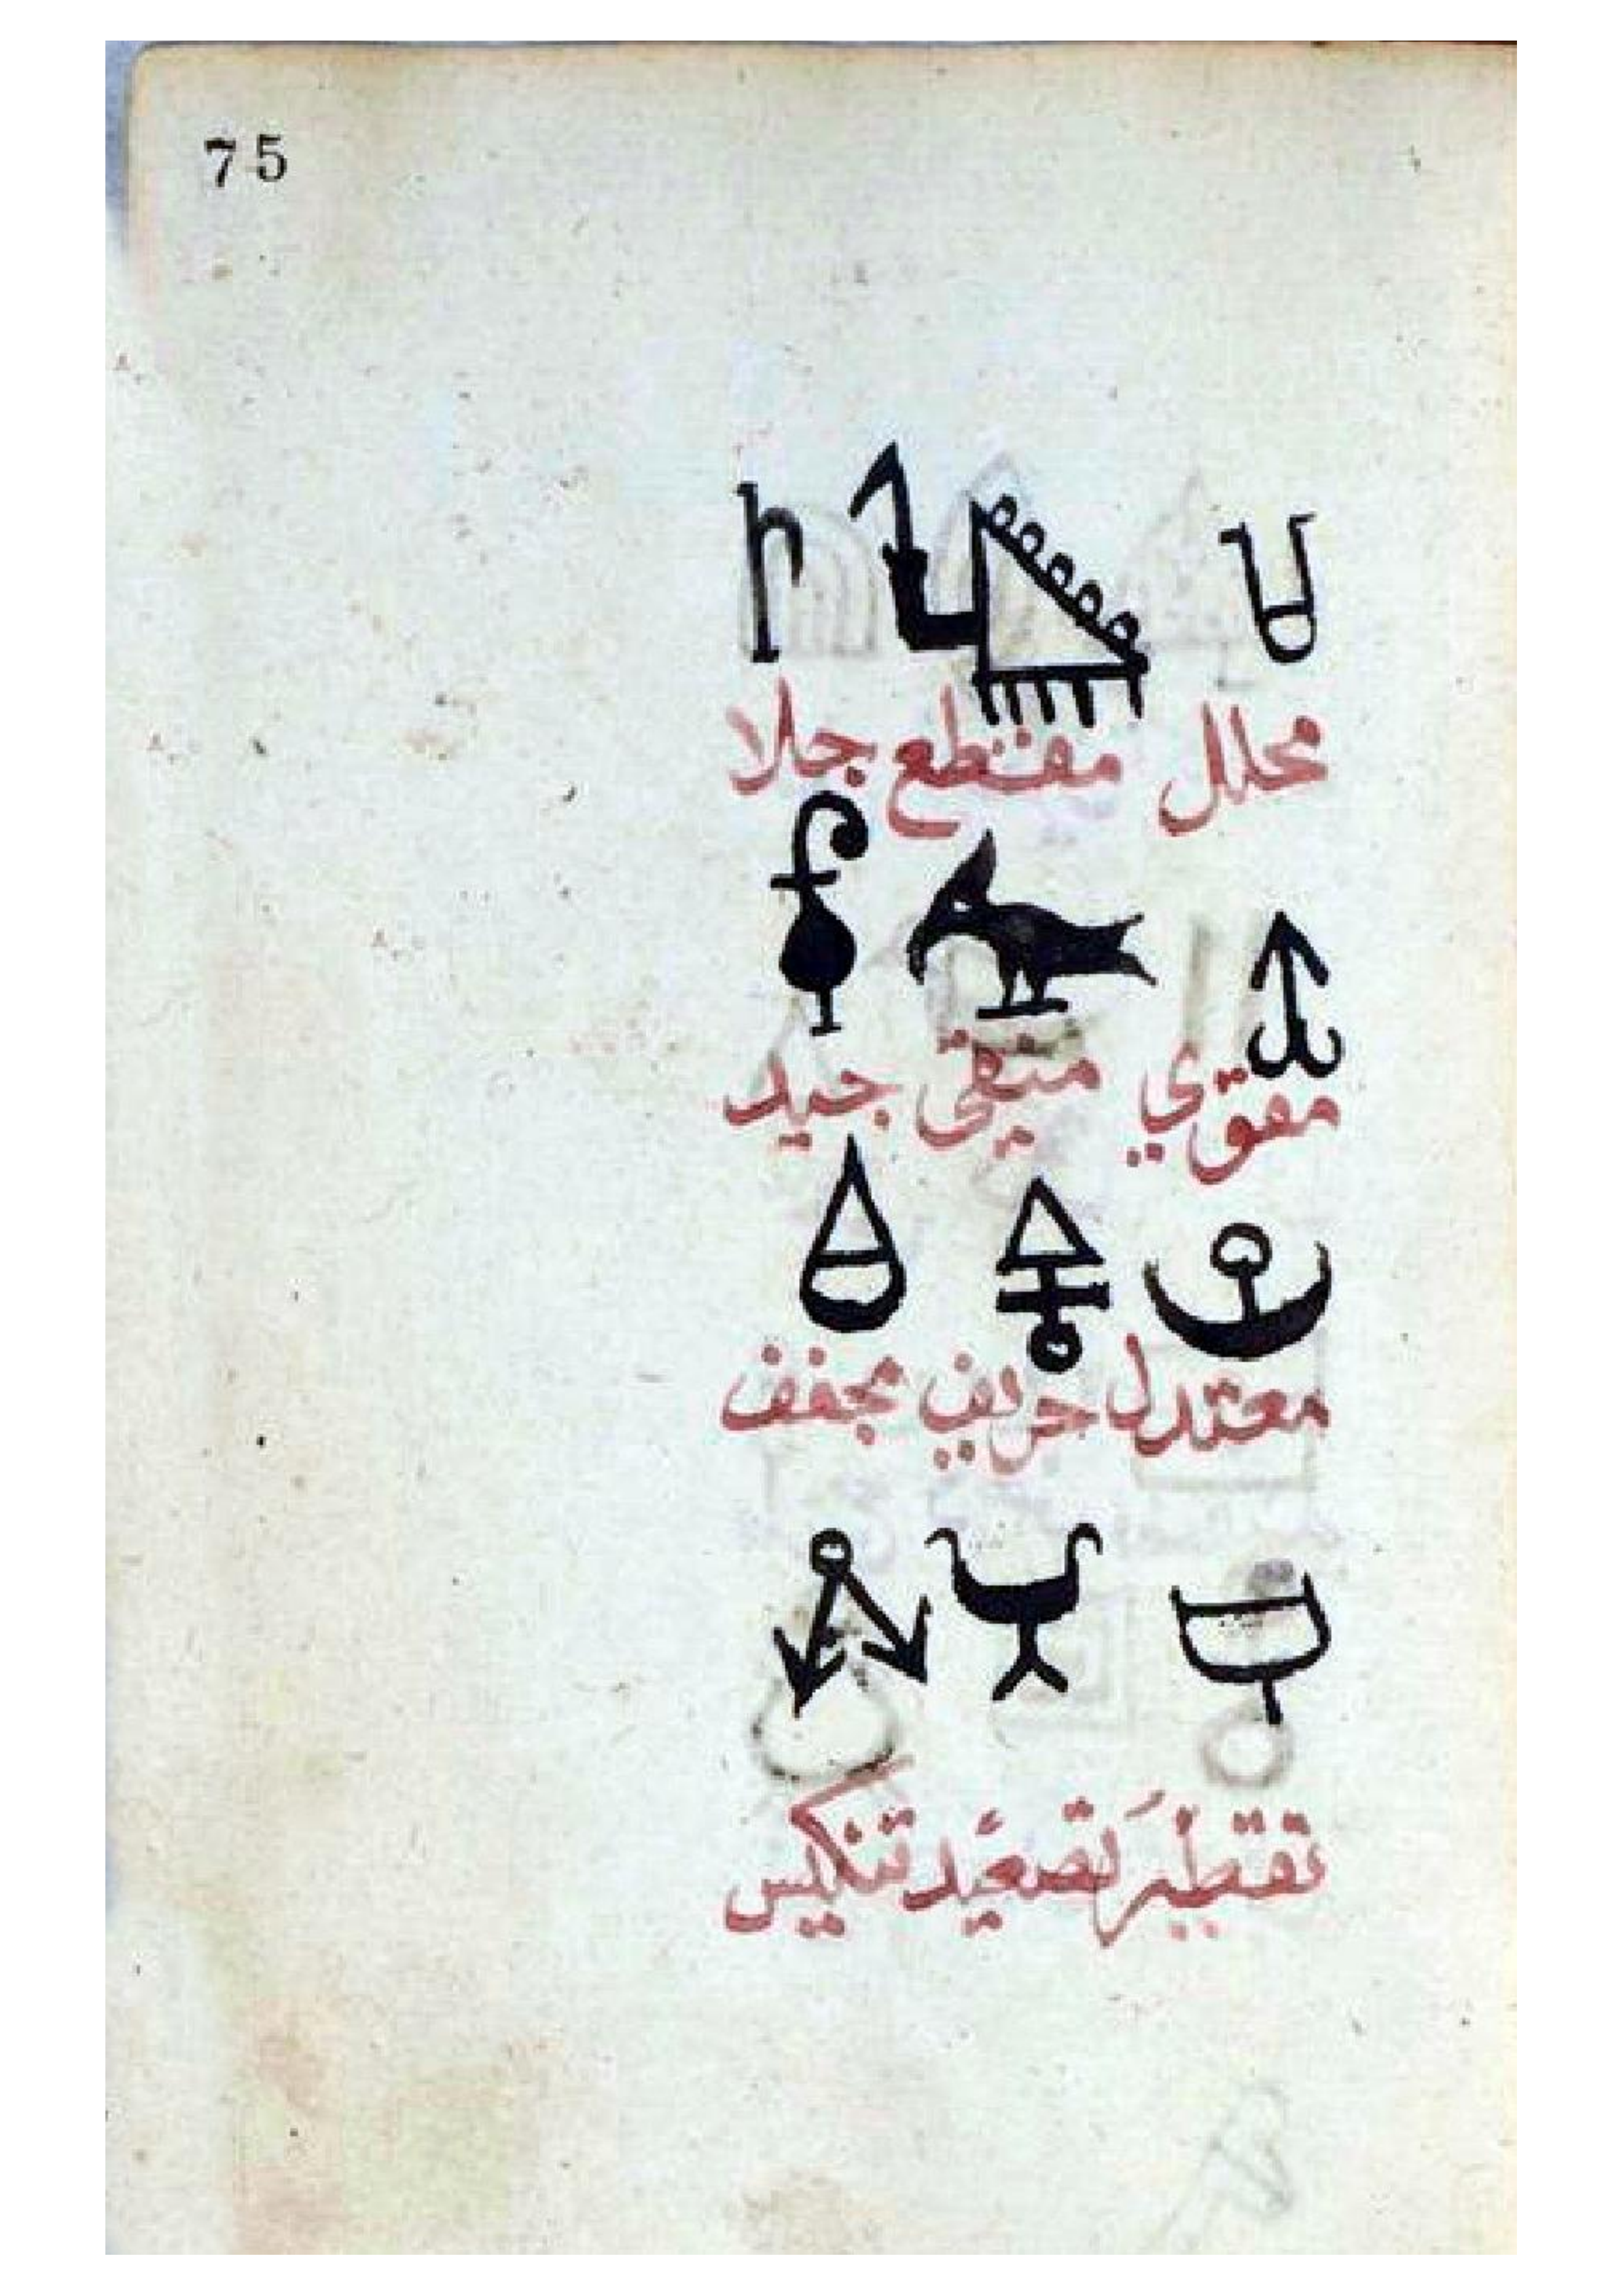 75
محلل مقطع جلا
مقوي منقى جيد
معتدل حريف مجفف
تقطير تصعيد تنكيس